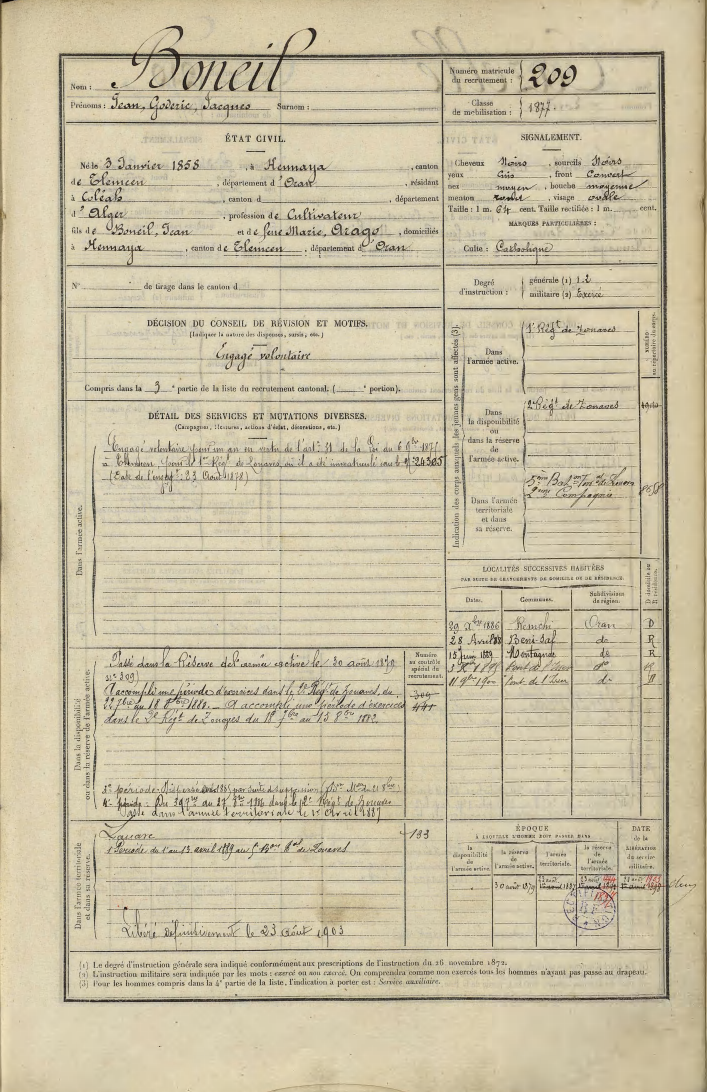 Nom : Boneil
Prénoms : Jean, Goderic, Jacques Surnom :
ÉTAT CIVIL.
Né le 3 Janvier 1858, à Hennaya, canton
de Tlemcen, département d'Oran, résidant
à Coléah, canton d , département
d'Alger, profession de Cultivateur
fils de Boneil, Jean et de feue Marie, Arago, domiciliés
à Hennaya, canton de Tlemcen, département d'Oran
N° de tirage dans le canton d
DÉCISION DU CONSEIL DE RÉVISION ET MOTIFS.
(Indiquer la nature des dispenses, sursis, etc.)
Engagé volontaire
Compris dans la 3e partie de la liste du recrutement cantonal. ( e portion).
DÉTAIL DES SERVICES ET MUTATIONS DIVERSES.
(Campagnes, blessures, actions d'éclat, décorations, etc.)
Dans l'armée active.
Engagé volontaire pour un an en vertu de l'art. 31 de la loi du
à Tlemcen, pour le 1er Régt de Zouaves, où il a été immatriculé sous le n° 24305
(Date de l'engagt : 23 Août 1878)
Dans la disponibilité ou dans la réserve de l'armée active.
Passé dans la Réserve de l'armée active le 30 août 1879
(n° 309)
A accompli une période d'exercices dans le 2e Régt de Zouaves, du
au 18 8bre
A accompli une période d'exercices
dans le 2e Régt de Zouaves du 18 7bre au 15 8bre 1882.
4e période - Du au 27 8bre 1886 dans le 2e Régt de Zouaves
Passé dans l'armée territoriale le 1er Avril 1887
Numéro au contrôle spécial du recrutement.
309
441
Dans l'armée territoriale et dans sa réserve.
Zouave
193
1e Période du 1 au 13 avril 1889 au 5e Bon de Zouaves
Libéré Définitivement le 23 Août 1903
Numéro matricule du recrutement : 209
Classe de mobilisation : 1877
SIGNALEMENT.
Cheveux Noirs, sourcils Noirs
yeux Gris, front Couvert
nez moyen, bouche moyenne
menton rond, visage ovale
Taille : 1 m. 64 cent. Taille rectifiée : 1 m. cent.
MARQUES PARTICULIÈRES :
Culte : Catholique
Degré d'instruction : générale (1) 1.2
militaire (2) Exercé
Indication des corps auxquels les jeunes gens sont affectés (3).
NUMÉRO au répertoire du corps.
Dans l'armée active.
1er Régt de Zouaves
Dans la disponibilité ou dans la réserve de l'armée active.
2e Régt de Zouaves
Dans l'armée territoriale et dans sa réserve.
5ème Baton Toral de Zouaves
2ème Compagnie
LOCALITÉS SUCCESSIVES HABITÉES
PAR SUITE DE CHANGEMENTS DE DOMICILE OU DE RÉSIDENCE.
Dates. Communes. Subdivisions de région. D domicile ou R résidence.
29 Xbre 1886 Remchi Oran D
28 Avril 88 Beni-Saf do R
15 juin 1889 Montagnac do R
Pont de l'Isser do R
11 9bre 1900 Pont de l'Isser do D
ÉPOQUE
À LAQUELLE L'HOMME DOIT PASSER DANS
la disponibilité de l'armée active. la réserve de l'armée active. l'armée territoriale. la réserve de l'armée territoriale.
DATE de la LIBÉRATION du service militaire.
30 août 1879
(1) Le degré d'instruction générale sera indiqué conformément aux prescriptions de l'instruction du 26 novembre 1872.
(2) L'instruction militaire sera indiquée par les mots : exercé ou non exercé. On comprendra comme non exercés tous les hommes n'ayant pas passé au drapeau.
(3) Pour les hommes compris dans la 4e partie de la liste, l'indication à porter est : Service auxiliaire.